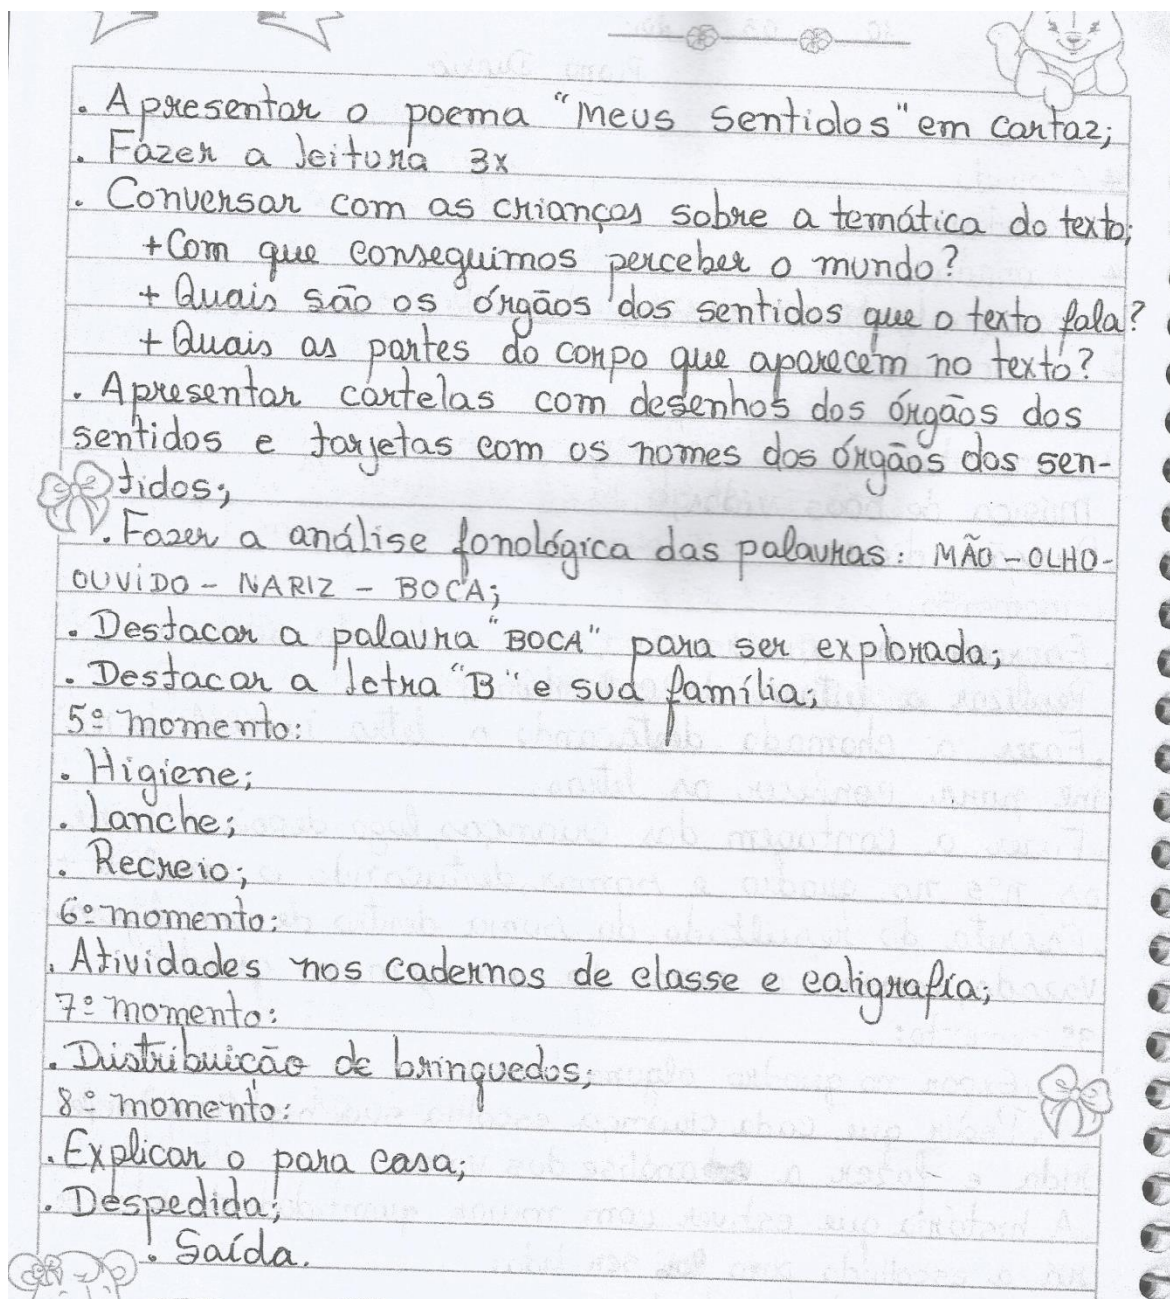 . Apresentar o poema "Meus Sentidos" em cartaz;
. Fazer a leitura 3x
. Conversar com as crianças sobre a temática do texto;
+Com que conseguimos perceber o mundo?
+ Quais são os órgãos dos sentidos que o texto fala?
+ Quais as partes do corpo que aparecem no texto?
. Apresentar cartelas com desenhos dos órgãos dos
sentidos e tarjetas com os nomes dos órgãos dos sen-
tidos;
. Fazer a análise fonológica das palavras: MÃO - OLHO -
OUVIDO - NARIZ - BOCA;
. Destacar a palavra "BOCA" para ser explorada;
. Destacar a letra "B" e sua família;
5º momento:
. Higiene;
. Lanche;
. Recreio;
6º momento:
. Atividades nos cadernos de classe e caligrafia;
7º momento:
. Distribuição de brinquedos;
8º momento:
. Explicar o para casa;
. Despedida;
. Saída.